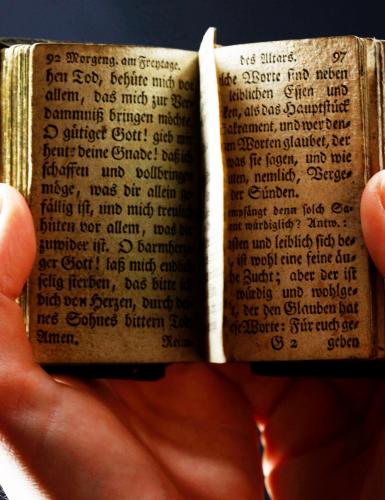 92 Morgeng. am Freytage.
hen Tod, behüte mich vor
allem, das mich zur
dammniß bringen möchte.
O gütiger Gott! gieb mir
heut: deine Gnade! daß ich
schaffen und vollbringen
möge, was dir allein ge-
fällig ist, und mich treulich
hüten vor allem, was dir
zuwider ist. O barmher-
ger Gott! laß mich endlich
selig sterben, das bitte ich
dich von Herzen, durch
nes Sohnes bittern Tod
Amen.
Reim
des Altars. 97
Worte sind neben
leiblichen Essen und
ken, als das Hauptstück
Sakrament, und wer den-
Worten glaubet, der
was sie sagen, und wie
nemlich, Verge-
der Sünden.
empfänget denn solch Sa-
würdiglich? Antw.:
und leiblich sich be-
ist wohl eine feine äu-
Zucht; aber der ist
würdig und wohlge-
der den Glauben hat
Worte: Für euch ge-
G 2 geben